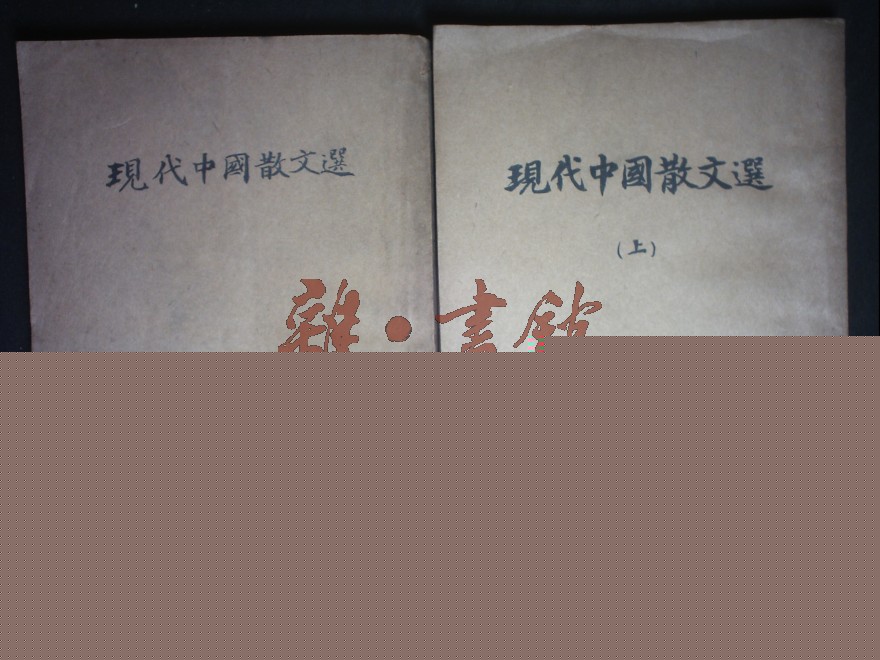 現代中國散文選
現代中國散文選
(上)
雜·書館